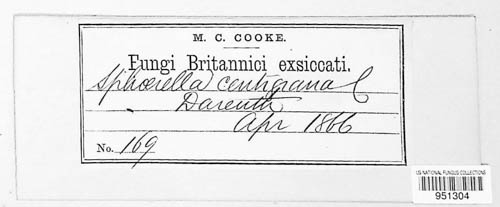 M. C. COOKE.
Fungi Britannici exsiccati.
Sphœrella centigrana C
Darenth
Apr 1866
No. 169
US NATIONAL FUNGUS COLLECTIONS
951304